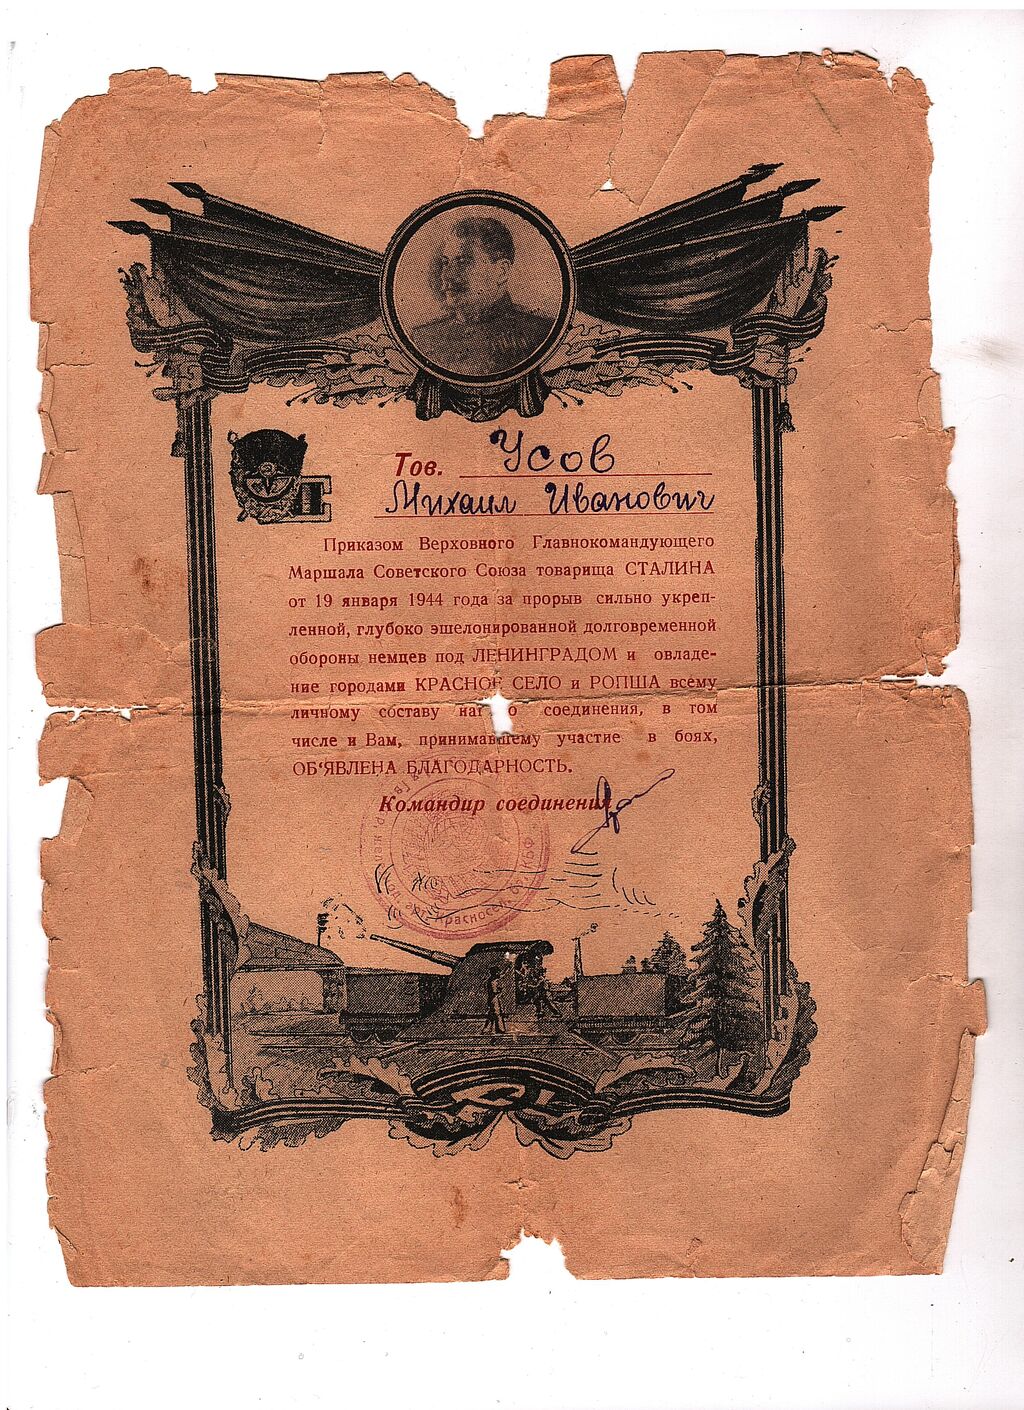 Тов. Усов
Михаил Иванович
Приказом Верховного Главнокомандующего
Маршала Советского Союза товарища СТАЛИНА
от 19 января 1944 года за прорыв сильно укреп-
ленной, глубоко эшелонированной долговременной
обороны немцев под ЛЕНИНГРАДОМ и овладе-
ние городами КРАСНОЕ СЕЛО и РОПША всему
личному составу наг о соединения, в том
числе и Вам, принимавшему участие в боях,
ОБ'ЯВЛЕНА БЛАГОДАРНОСТЬ.
Командир соединения
Красносел. КБФ